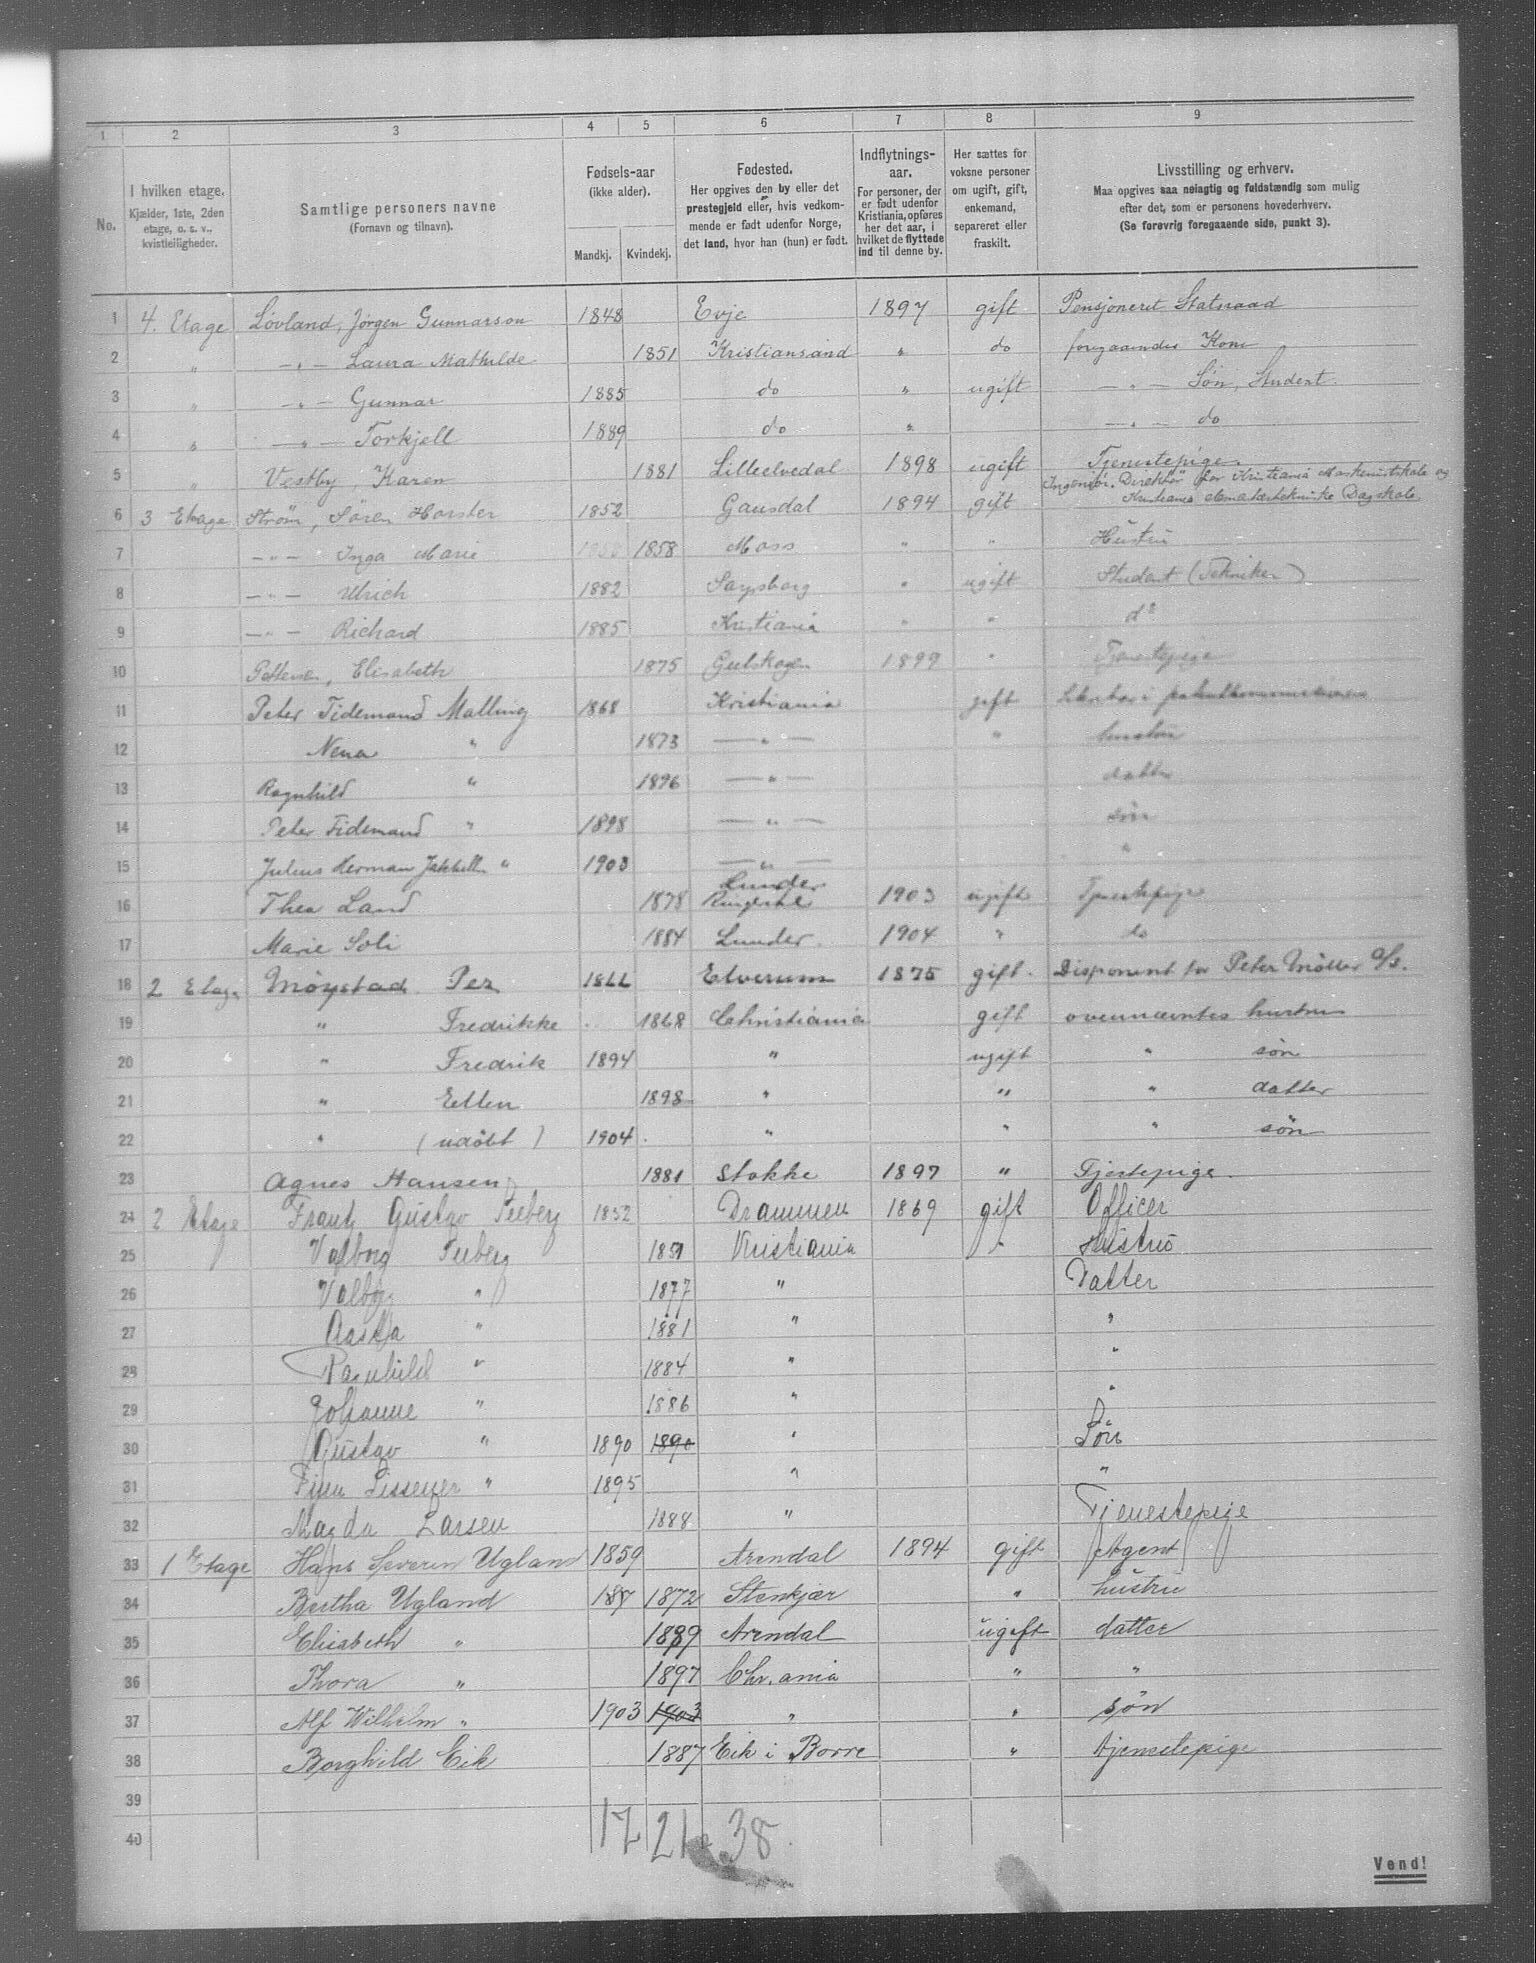 1 2 3 4 5 6 7 8 9
No.
I hvilken etage.
Kjælder, 1ste, 2den
etage, o. s. v.,
kvistleiligheder.
Samtlige personers navne
(Fornavn og tilnavn).
Fødsels-aar
(ikke alder).
Mandkj. Kvindekj.
Fødested.
Her opgives den by eller det
prestegjeld eller, hvis vedkom-
mende er født udenfor Norge,
det land, hvor han (hun) er født.
Indflytnings-
aar.
For personer, der
er født udenfor
Kristiania, opføres
her det aar, i
hvilket de flyttede
ind til denne by.
Her sættes for
voksne personer
om ugift, gift,
enkemand,
separeret eller
fraskilt.
Livsstilling og erhverv.
Maa opgives saa nøiagtig og fuldstændig som mulig
efter det, som er personens hovederhverv.
(Se forøvrig foregaaende side, punkt 3).
1 4. Etage Løvland, Jørgen Gunnarson 1848 Evje 1897 gift Pensjoneret Statsraad
2 " —"— Laura Mathilde 1851 Kristiansand " do foregaaendes Kone
3 " —"— Gunnar 1885 do " ugift —"— Søn, Student.
4 " —"— Torkjell 1889 do " —"— do
5 " Vestby, Karen 1881 Lilleelvedal 1898 ugift Tjenestepige.
Ingeniør. Direktör for Kristiania Maskinistskole og
6 3 Etage Ström, Sören Horster 1852 Gausdal 1894 gift Kristiania elementærtekniske Dagskole
7 —"— Inga Marie 1858 1858 Moss " " Hustru
8 —"— Ulrich 1882 Sarpsborg " ugift Student (Tekniker)
9 —"— Richard 1885 Kristiania " " do
10 Pettersen, Elisabeth 1875 Gulskogen 1899 " Tjenestepige
11 Peter Tidemand Malling 1868 Kristiania gift i
12 Nena " 1873 —"— " hustru
13 Ragnhild " 1896 —"— datter
14 Peter Tidemand " 1898 —"— søn
15 Julius Herman " 1903 —"— "
Lunder
16 Thea Land 1878 Ringerike 1903 ugift Tjenestepige
17 Marie Soli 1884 Lunder. 1904 " do
18 2 Etage Möystad Per 1866 Elverum 1875 gift. Disponent for Peter Möller A/S.
19 " Fredrikke 1868 Christiania gift ovennævntes hustru
20 " Fredrik 1894 " ugift " sön
21 " Ellen 1898 " " " datter
22 " (udöbt) 1904 " " " sön
23 Agnes Hansen 1881 Stokke 1897 " Tjenstepige.
24 2 Etage Frantz Gustav Seeberg 1852 Drammen 1869 gift Officer
25 Valborg Seeberg 1851 Kristiania " Hustru
26 Valborg " 1877 " Datter
27 Aasta " 1881 " "
28 Ragnhild " 1884 " "
29 Johanne " 1886 " "
30 Gustav " 1890 1890 " Søn
31 Finn " 1895 " "
32 Magda Larsen 1888 " Tjenestepige
33 1 Etage Hans Severin Ugland 1859 Arendal 1894 gift Agent
34 Bertha Ugland 187 1872 Stenkjær " hustru
35 Elisabeth " 1889 Arendal ugift datter
36 Thora " 1897 Chr.ania " "
37 Alf Wilhelm " 1903 1903 " " sön
38 Borghild Eik 1887 Eik i Borre " tjenestepige
39
40
17 21 38.
Vend!